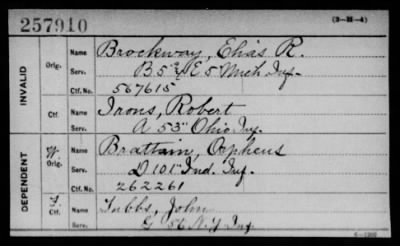 257910 (3-H-4)
INVALID
Orig.
Name Brockway, Elias R.
Serv. B 5 & E 5 Mich Inf.
Ctf. No. 567615
Ctf.
Name Irons, Robert
Serv. A 53" Ohio Inf.
DEPENDENT
W. Orig.
Name Brattain, Orpheus
Serv. D 101" Ind. Inf.
Ctf. No. 262261
Ctf.
Name Tubbs, John
Serv. G 56 N.Y. Inf.